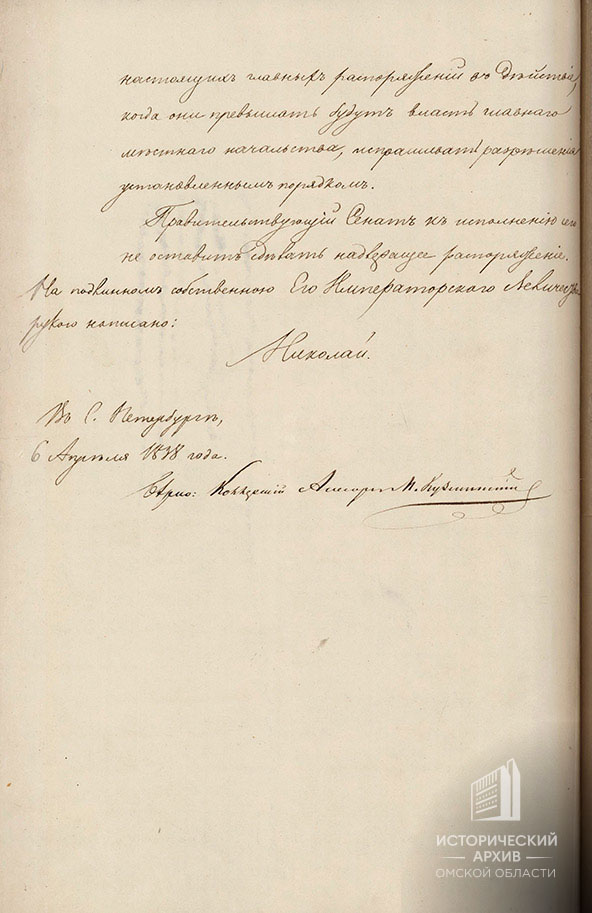 настоящихъ главныхъ распоряженій въ дѣйствіе,
когда они превышать будутъ власть главнаго
мѣстнаго начальства, испрашивать разрѣшенія
установленнымъ порядкомъ.
Правительствующій Сенатъ къ исполненію сего
не оставитъ сдѣлать надлежащее распоряженіе.
На подлинномъ собственною Его Императорскаго Величества
рукою написано:
Николай.
Въ С. Петербургѣ,
6 Апрѣля 1838 года.
Вѣрно: Коллежскій Ассесоръ М.
ИСТОРИЧЕСКИЙ
АРХИВ
ОМСКОЙ ОБЛАСТИ